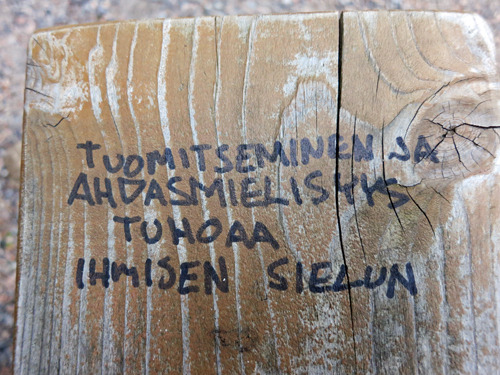 TUOMITSEMINEN JA
AHDASMIELISYYS
TUHOAA
IHMISEN SIELUN